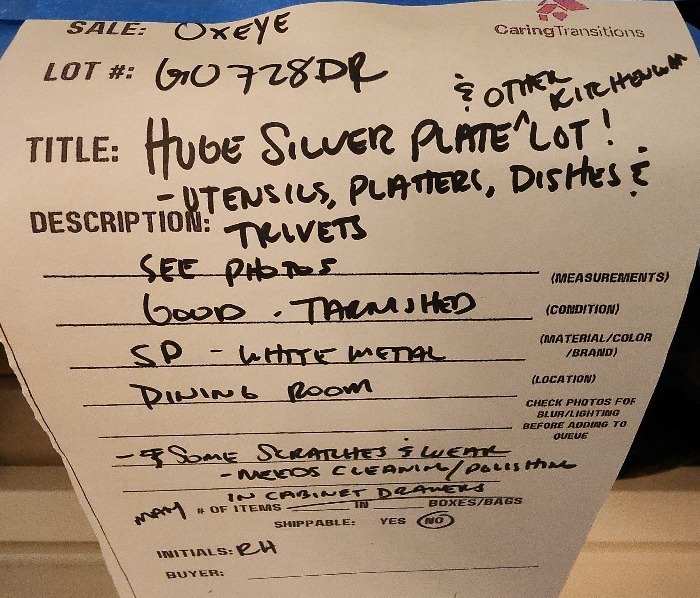 SALE: OXEYE
CaringTransitions
LOT #: GO728DR
& OTHER KITCHENWA
TITLE: HUGE SILVER PLATE ^ LOT!
- UTENSILS, PLATTERS, DISHES &
DESCRIPTION: TRIVETS
SEE PHOTOS (MEASUREMENTS)
GOOD - TARNISHED (CONDITION)
SP - WHITE METAL (MATERIAL/COLOR /BRAND)
DINING ROOM (LOCATION)
CHECK PHOTOS FOR
BLUR/LIGHTING
BEFORE ADDING TO
QUEUE
- & SOME SCRATCHES & WEAR
- NEEDS CLEANING/POLISHING
IN CABINET DRAWERS
MANY # OF ITEMS IN BOXES/BAGS
SHIPPABLE: YES NO
INITIALS: RH
BUYER: